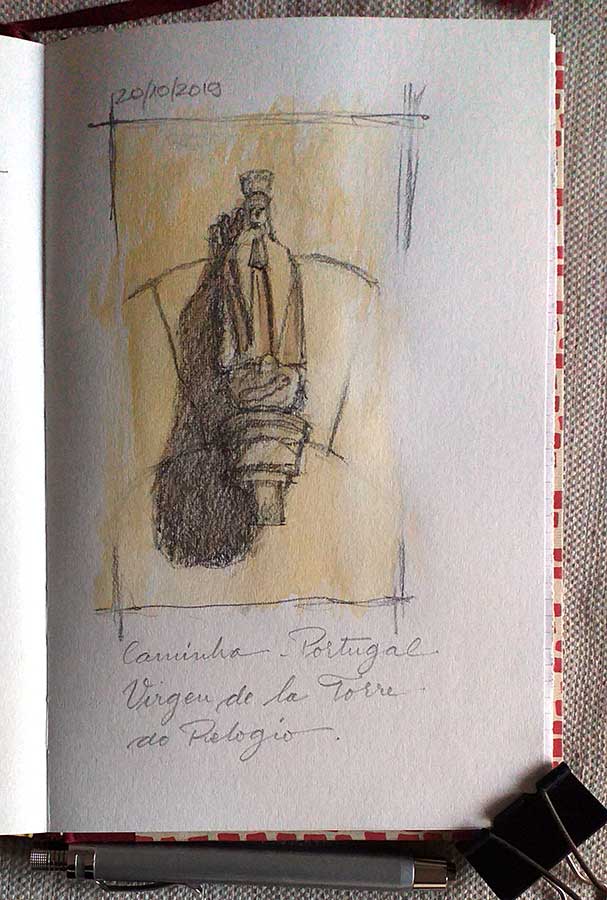 20/10/2019
Caminha - Portugal.
Virgen de la Torre
do Relogio.